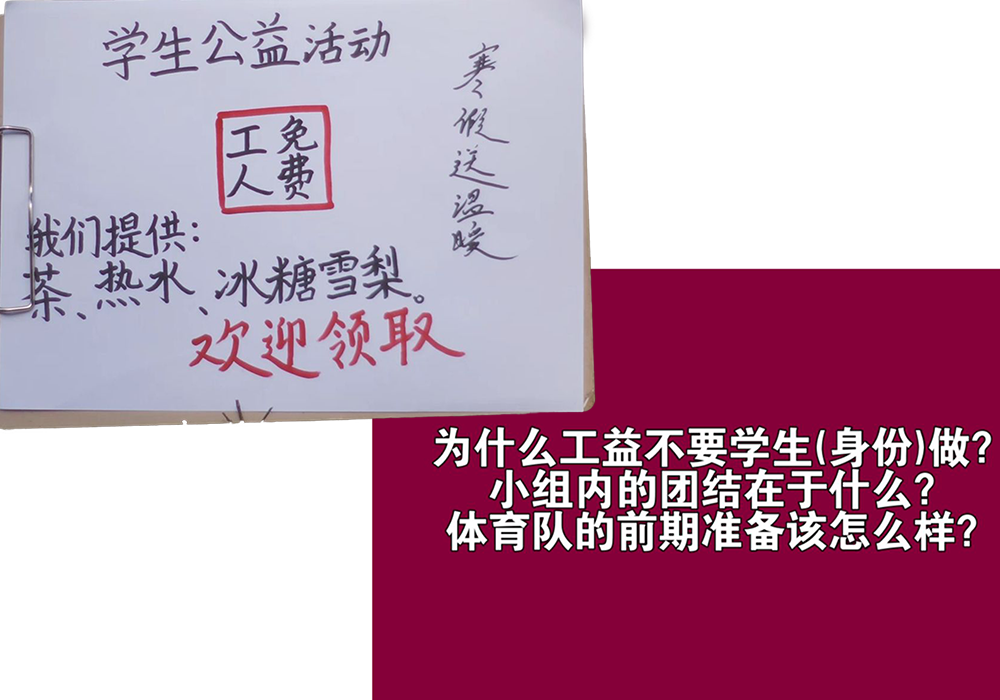 学生公益活动
寒假送温暖
工免
人费
我们提供：
茶、热水、冰糖雪梨。
欢迎领取
为什么工益不要学生(身份)做?
小组内的团结在于什么?
体育队的前期准备该怎么样?